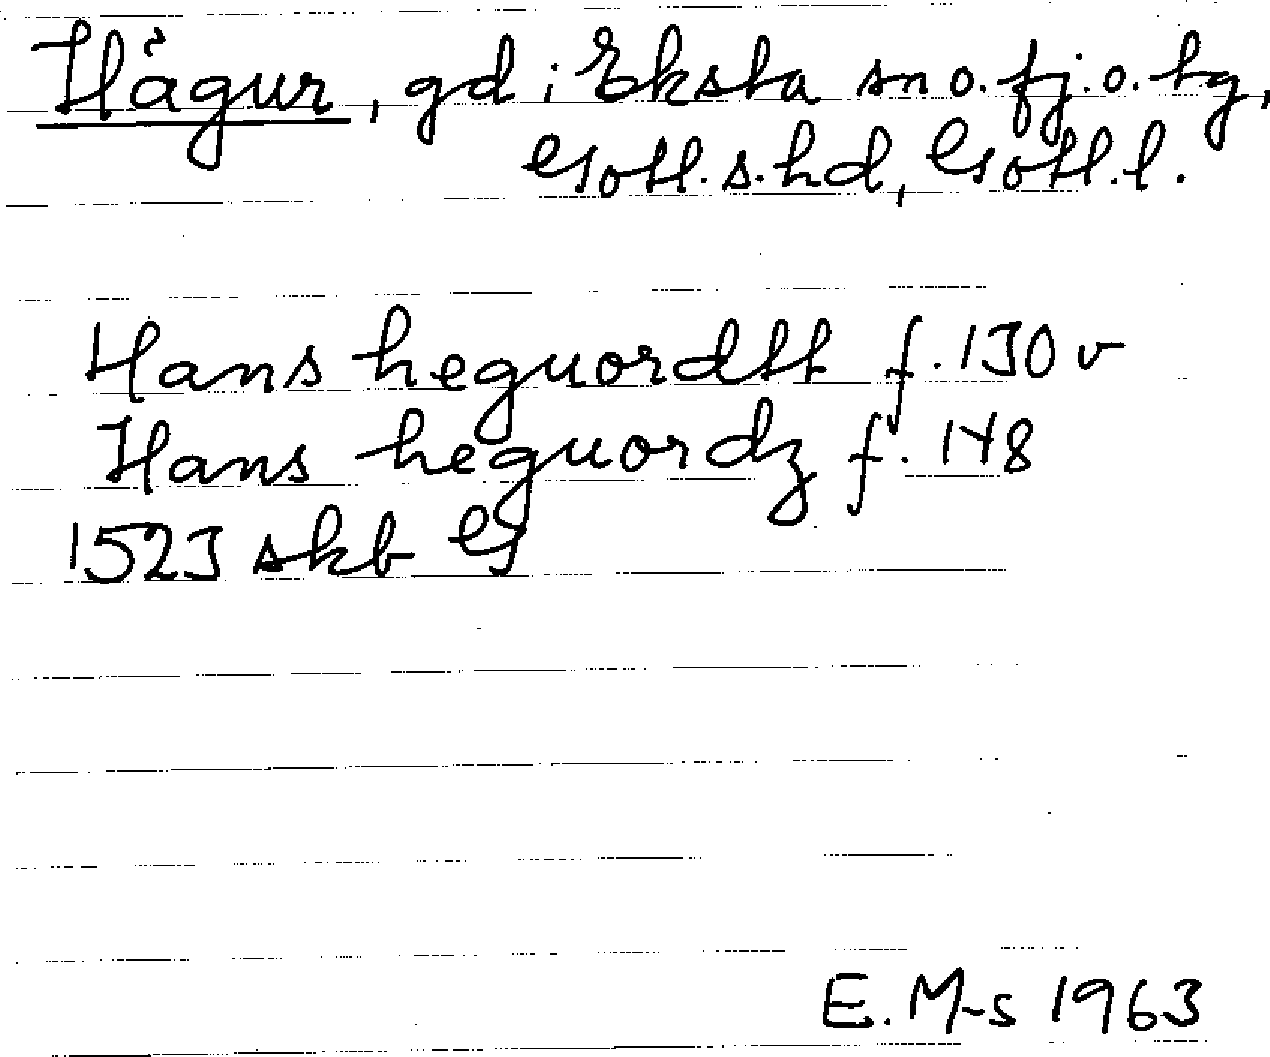 Hågur, gd i Eksta sn o. fj. o. tg,
Gotl. s. hd, Gotl. l.
Hans heguordtt f. 130 v
Hans heguordz f. 148
1523 skb G
E. M-s 1963